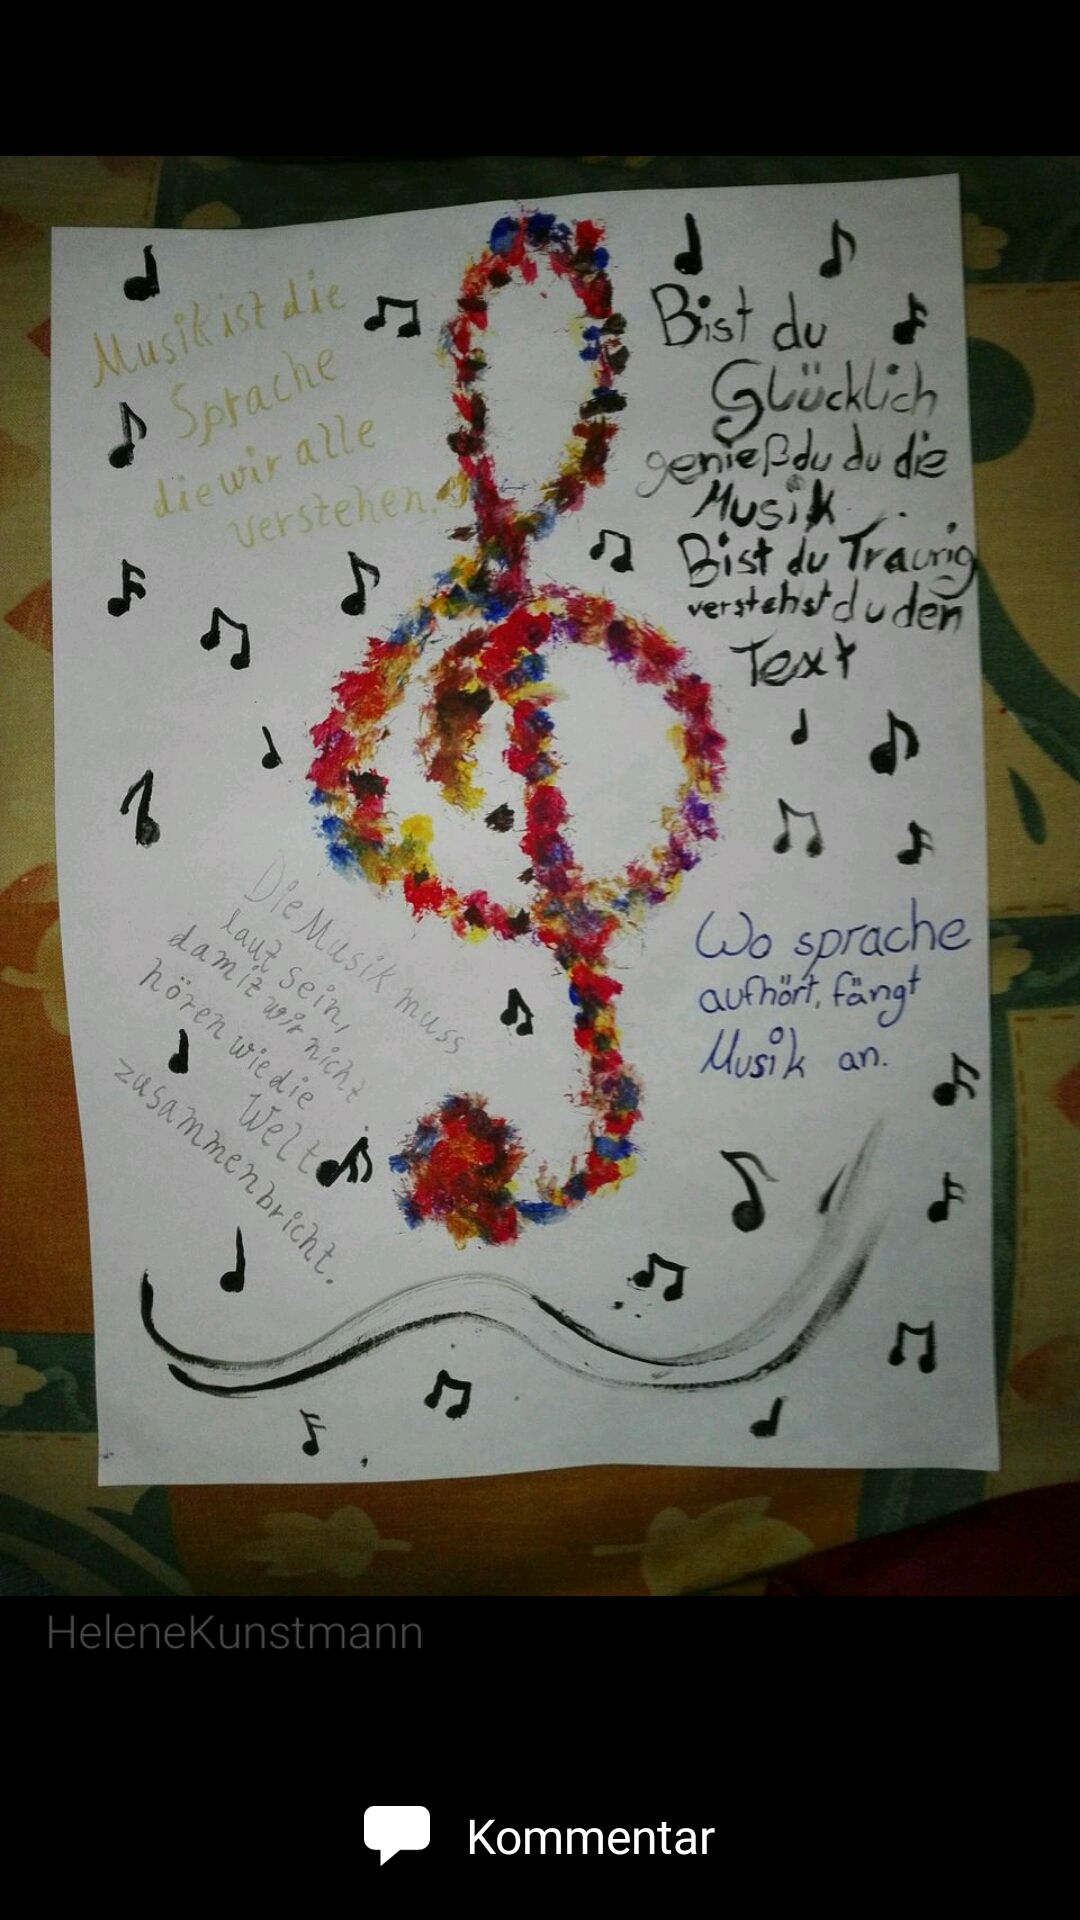 Musik ist die
Sprache
die wir alle
verstehen.
Bist du
Glücklich
genießdu du die
Musik.
Bist du Traurig
verstehst du den
Text
Die Musik muss
laut sein,
damit wir nicht
hören wie die
Welt
zusammenbricht.
Wo sprache
aufhört, fängt
Musik an.
HeleneKunstmann
Kommentar